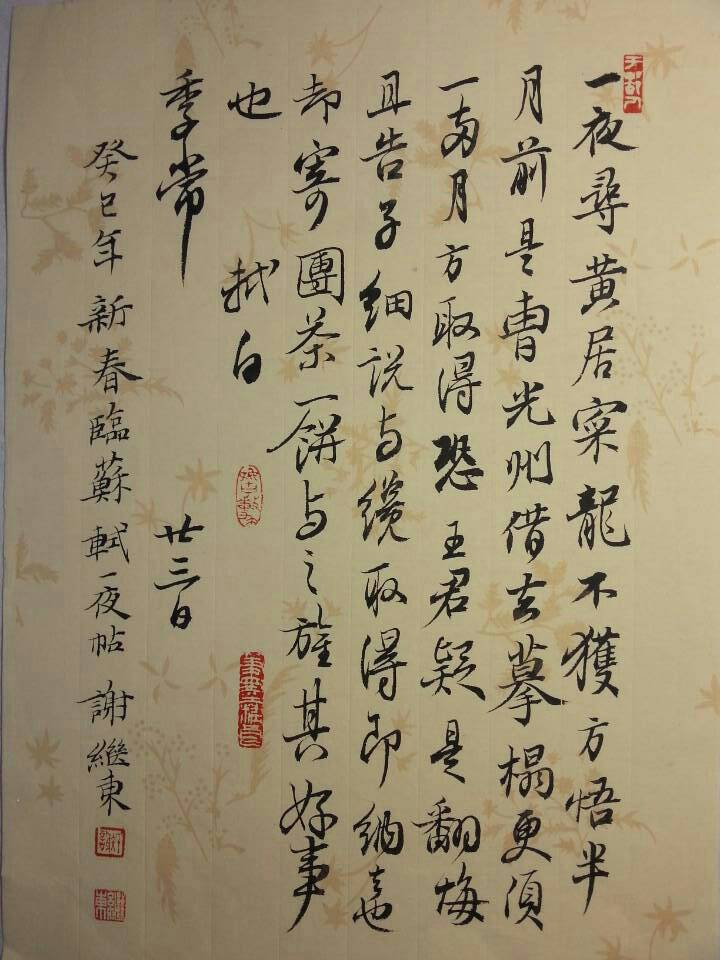 一夜尋黄居寀龍不獲方悟半
月前是曹光州借去摹榻更須
一兩月方取得恐王君疑是翻悔
且告子細説与纔取得即納去也
却寄團茶一餅与之旌其好事
也
軾白
季常
廿三日
癸巳年新春臨蘇軾一夜帖 謝繼東